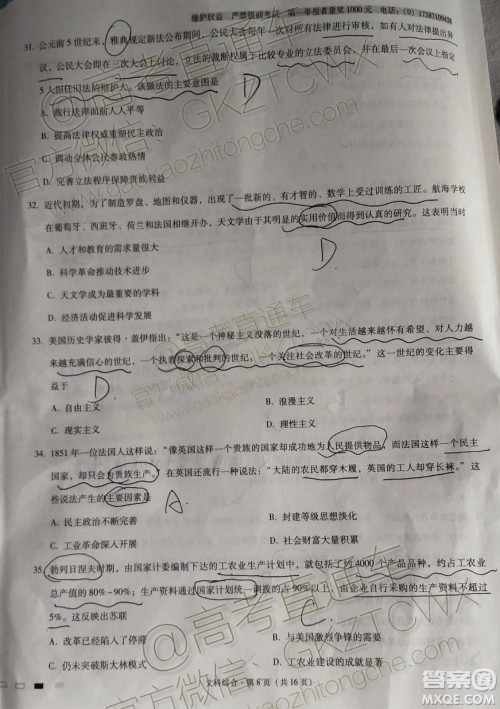 维护权益 严禁提前考试 第一举报者重奖1000元 电话：(0) 17387109438
31. 公元前5世纪末，雅典规定新法公布期间，公民大会每年一次对所有法律进行审核，如有人对法律提出异
议，公民大会即在三次大会上讨论，立法的裁断权属于比较专业的立法委员会，并在最后一次会议上指定
5人担任旧法的辩护人。该做法的主要意图是
A. 践行法律面前人人平等
B. 提高法律权威重塑民主政治
C. 调动全体公民参政热情
D. 完善立法程序保障贵族利益
32. 近代初期，为了制造罗盘、地图和仪器，出现了一批新的、有才智的、数学上受过训练的工匠。航海学校
在葡萄牙、西班牙、荷兰和法国相继开办，天文学由于其明显的实用价值而得到认真的研究。这表明当时
A. 人才和教育的需求量很大
D
B. 科学革命推动技术进步
C. 天文学成为最重要的学科
D
33. 美国历史学家彼得·盖伊指出：“这是一个神秘主义没落的世纪，一个对生活越来越怀有希望、对人力越
来越充满信心的世纪，一个执着探索和批判的世纪，一个关注社会改革的世纪。”这一世纪的变化主要得
益于
D.
A. 自由主义 B. 浪漫主义
C. 人文主义 D. 理性主义
34. 1851年一位法国人这样说：“像英国这样一个贵族的国家却成功地为人民提供物品，而法国这样一个民主
国家，却只会为贵族生产。”在英国还流行一种说法：“大陆的农民都穿木履，英国的工人却穿长袜。”这
些说法产生的主要因素是
A.
A. 民主政治不断完善 B. 封建等级思想淡化
C. 工业革命深入开展 D. 社会财富大量积累
35. 勃列日涅夫时期，由国家计委编制下达的工农业生产计划中，就包括了约4000个产品品种，约占工农业
总产值的80%~90%；生产资料通过国家计划统一调拨的占90%以上，由企业自行采购的生产资料不超过
5%。这反映出苏联
A. 改革已经陷入了停滞 B. 与美国激烈争锋的需要
C. 仍未突破斯大林模式 D. 工农业建设的成就显著
文科综合·第8页（共16页）
@高考直通车
官方微信：GKZTCWX
官方网站：gaokaozhitongche.com
答案圈
MXQE.COM